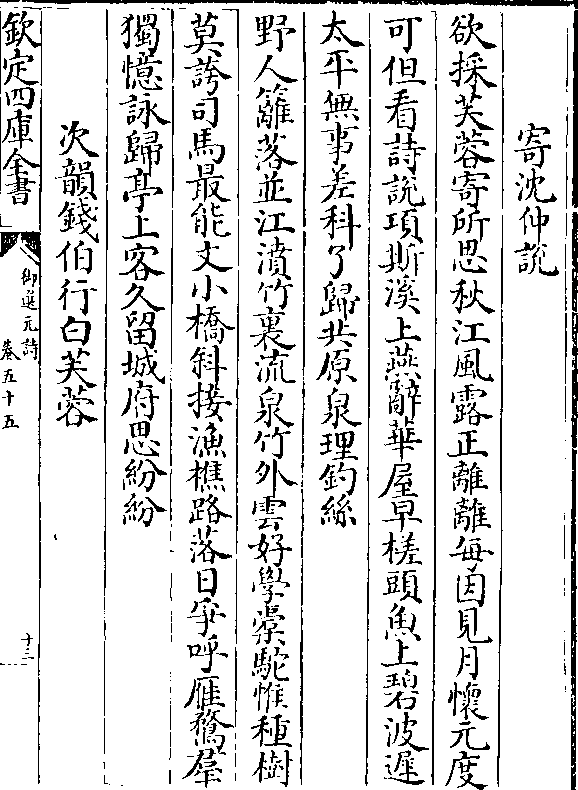 寄沈仲説
欲採芙蓉寄所思秋江風露正離離每因見月懷元度
可但看詩說項斯溪上燕辭華屋早槎頭魚上碧波遲
太平無事差科了歸共原泉理釣絲
野人籬落並江濆竹裏流泉竹外雲好學槖駝惟種樹
莫誇司馬最能文小橋斜接漁樵路落日爭呼雁鶩羣
獨憶詠歸亭上客久留城府思紛紛
次韻錢伯行白芙蓉
欽定四庫全書
御選元詩
卷五十五
十三